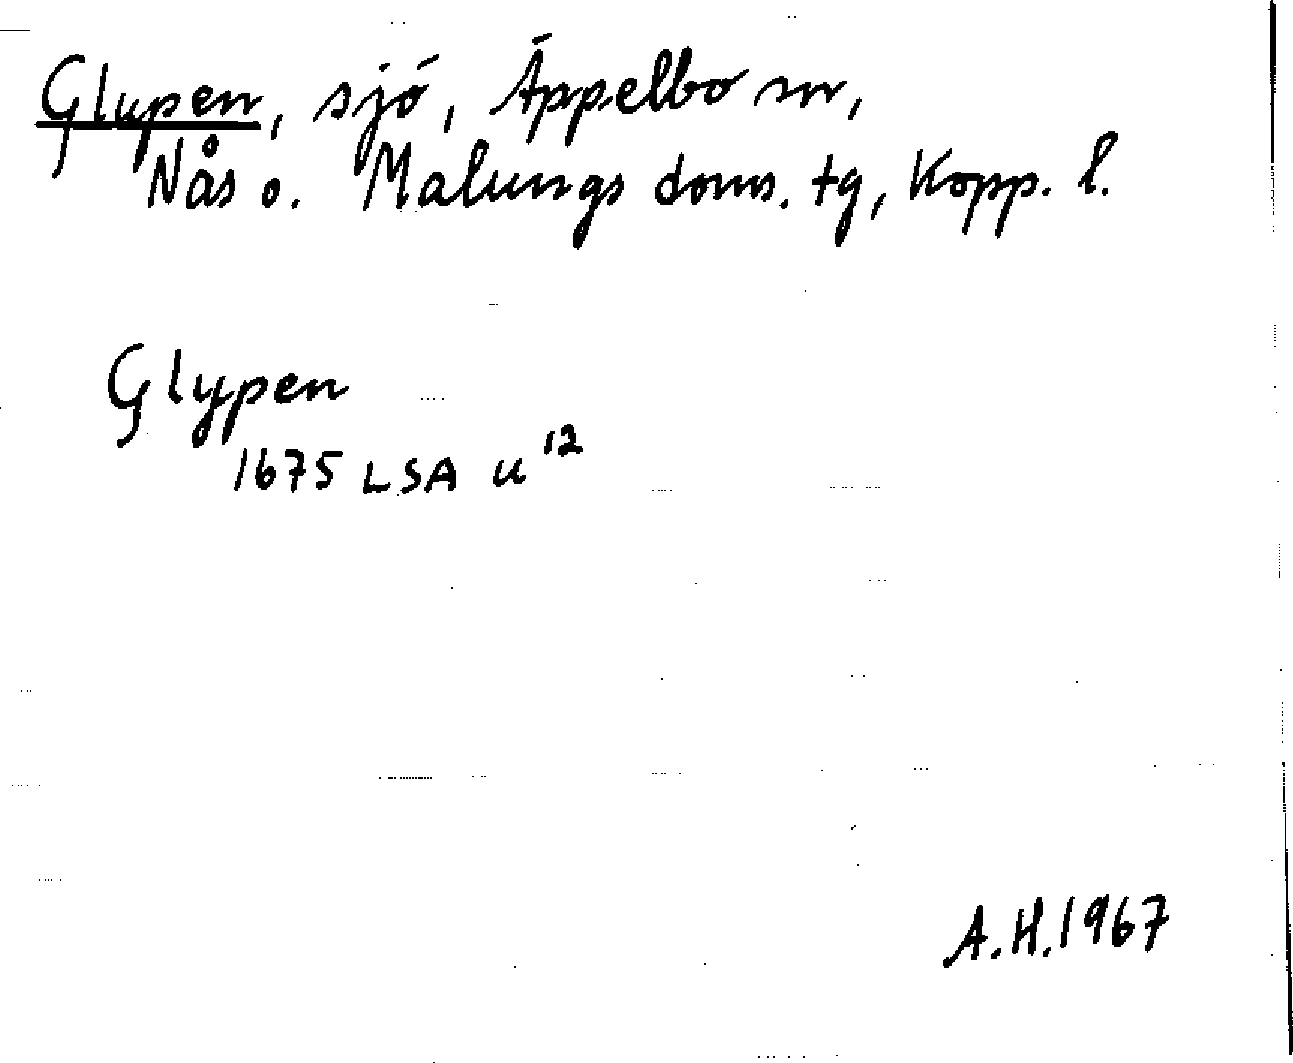 Glupen, sjö, Äppelbo sn,
Nås o. Malungs doms. tg, Kopp. l.
Glypen
1675 LSA U 12
A.H. 1967